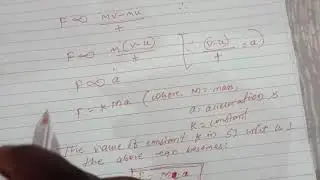 F ∝ mv-mu / t
F ∝ m(v-u) / t [∵ (v-u) / t = a]
F ∝ a
F = k ma (where m = mass,
a = acceleration &
k = constant
The value of constant k in SI unit is 1
the above eqn becomes:
F = m a